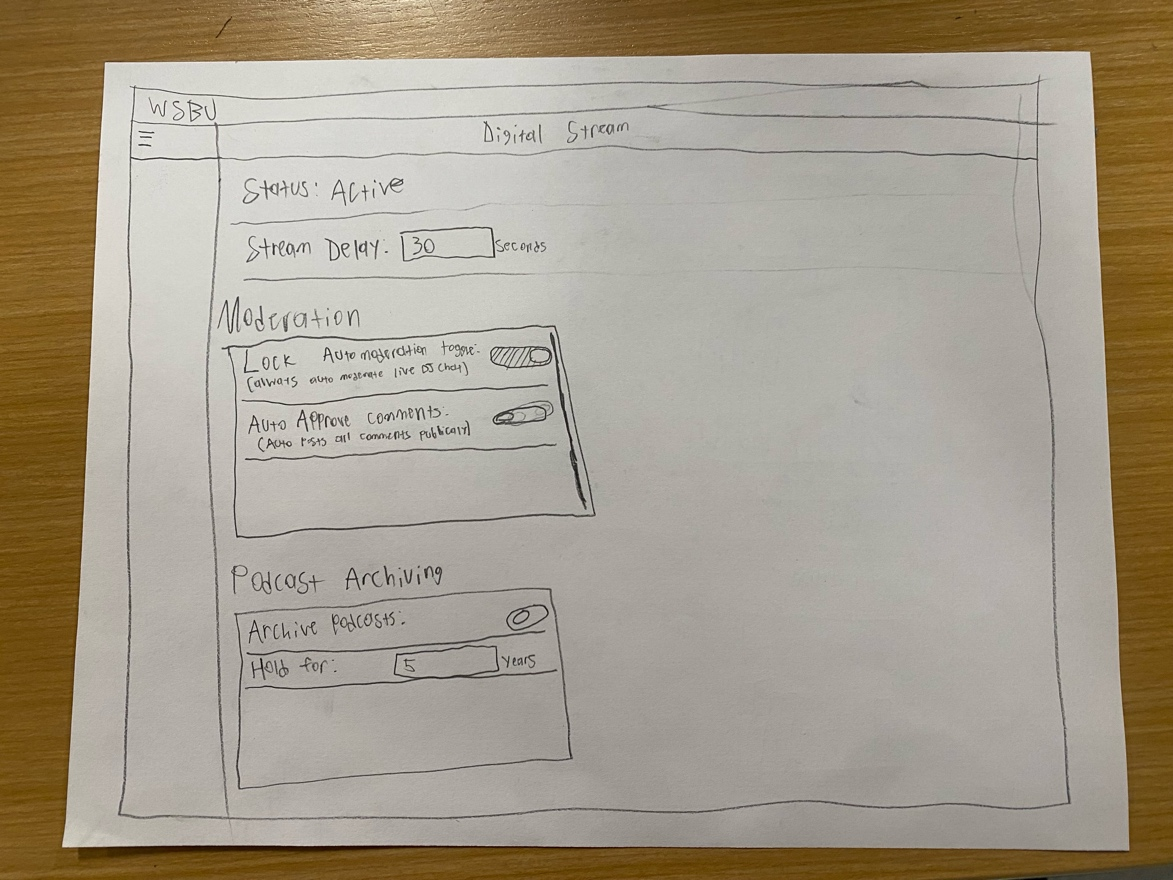 WSBU
Digital Stream
Status: Active
Stream Delay: 30 Seconds
Moderation
Lock Auto moderation toggle:
(always auto moderate live DJ Chat)
Auto Approve comments:
(Auto Posts all comments publically)
Podcast Archiving
Archive podcasts:
Hold for: 5 years